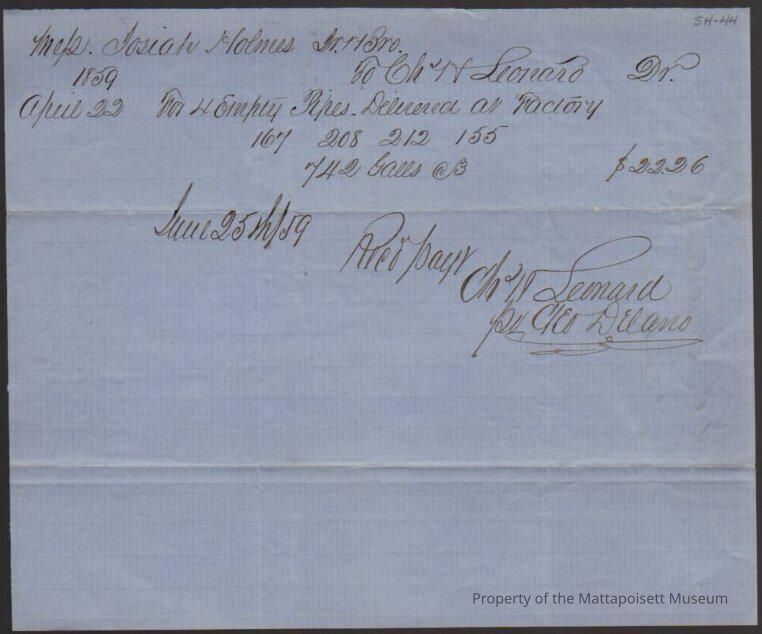 SH-44
Mess. Josiah Holmes Jr. & Bro.
1859 To Chs W Leonard Dr.
April 22 For 4 Empty Pipes. Delivered at Factory
167 208 212 155
742 Galls @3 $22.26
June 25th/59
Recd payt
Chs W Leonard
per Geo Delano
Property of the Mattapoisett Museum